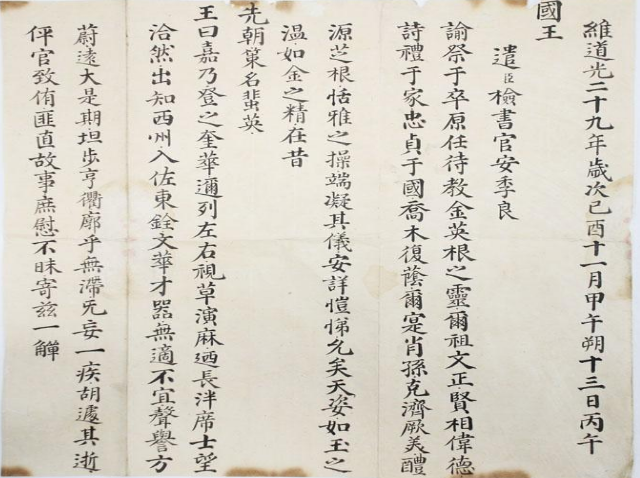 維道光二十九年歲次己酉十一月甲午朔十三日丙午
國王
遣臣檢書官安季良
諭祭于卒原任待教金英根之靈爾祖文正賢相偉德
詩禮于家忠貞于國喬木復蔭爾寔肖孫克濟厥美醴
源芝根恬雅之操端凝其儀安詳愷悌允矣天姿如玉之
温如金之精在昔
先朝策名蜚英
王曰嘉乃登之奎華邇列左右視草演麻迺長泮席士望
洽然出知西州入佐東銓文華才器無適不宜聲譽方
蔚遠大是期坦步亨衢廓乎無滯旡妄一疾胡遽其逝
伻官致侑匪直故事庶慰不昧寄玆一觶